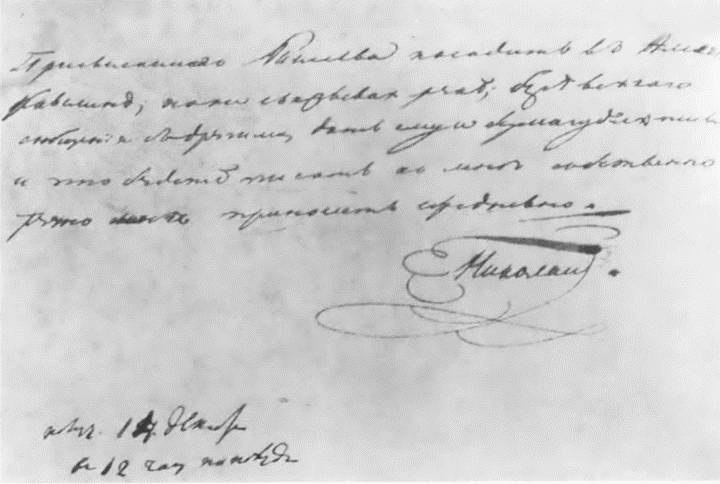 Присылаемого Рылеева посадить въ Алек
равелинъ; но не связывая рукъ; безъ всякаго
сообщенія съ другими, дать ему и бумагу для письма
и что будетъ писать ко мнѣ собственно
ручно мнѣ приносить ежедневно.
Николай
получ. декабр
въ 12 час пополудн